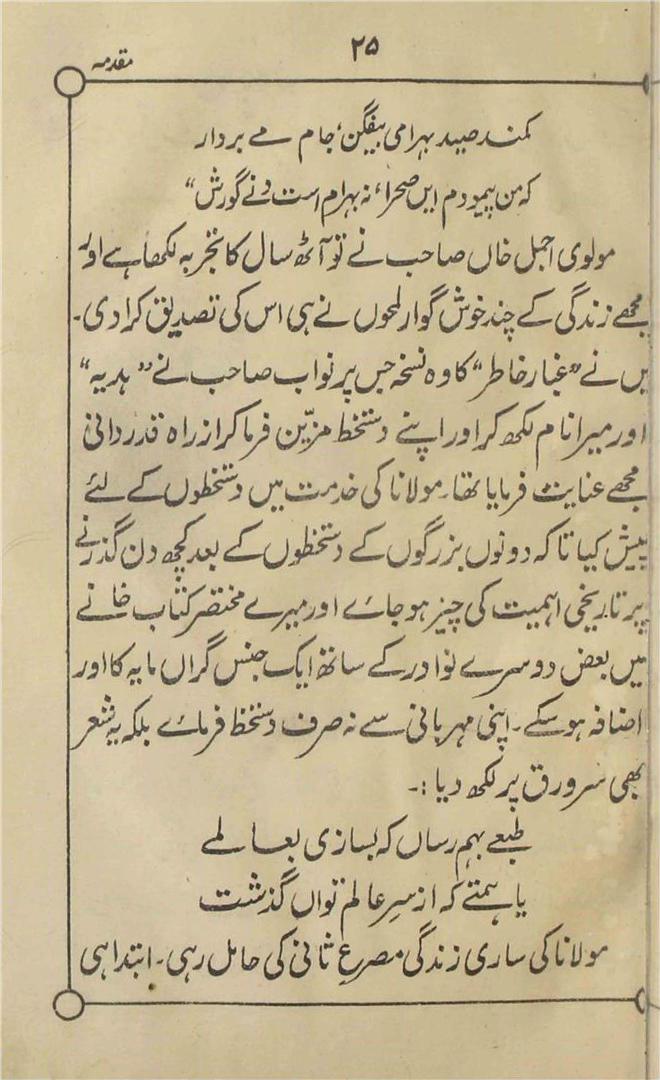 ۲۵
مقدمہ
کمند صید بہرامی بیفگن، جام مے بردار
کہ من پیمودم ایں صحرا، نہ بہرام است ونے گورش“
مولوی اجمل خاں صاحب نے تو آٹھ سال کا تجربہ لکھا ہے اور
مجھے زندگی کے چند خوش گوار لمحوں نے ہی اس کی تصدیق کرا دی۔
میں نے ”غبار خاطر“ کا وہ نسخہ جس پر نواب صاحب نے ”ہدیہ“
اور میرا نام لکھ کر اور اپنے دستخط مزیّن فرما کر از راہ قدردانی
مجھے عنایت فرمایا تھا۔ مولانا کی خدمت میں دستخطوں کے لئے
پیش کیا تا کہ دونوں بزرگوں کے دستخطوں کے بعد کچھ دن گذرنے
پر تاریخی اہمیت کی چیز ہو جائے اور میرے مختصر کتاب خانے
میں بعض دوسرے نوادر کے ساتھ ایک جنس گراں مایہ کا اور
اضافہ ہو سکے۔ اپنی مہربانی سے نہ صرف دستخط فرمائے بلکہ یہ شعر
بھی سرورق پر لکھ دیا :۔
طبعے بہم رساں کہ بسازی بعالمے
یا ہمتے کہ از سرِ عالم تواں گذشت
مولانا کی ساری زندگی مصرعِ ثانی کی حامل رہی۔ ابتدا ہی